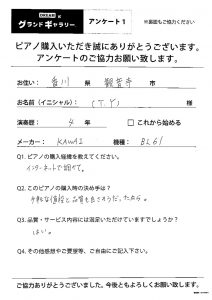 グランドギャラリー アンケート1 ※裏面もご協力ください
ピアノ購入いただき誠にありがとうございます。
アンケートのご協力お願い致します。
お住い： 香川 県 観音寺 市
お名前（イニシャル）： （T.Y）
演奏歴： 4 年 □ これから始める
メーカー： KAWAI 機種： BL61
Q1. ピアノの購入経緯を教えてください。
インターネットで調べて。
Q2. このピアノの購入時の決め手は？
手軽な値段と品質も良さそうだったから。
Q3. 品質・サービス内容には満足いただけていますでしょうか？
はい。
Q4. その他感想やご要望等、ご自由にご記入下さい。
ご協力ありがとうございました。今後ともよろしくお願い致します。